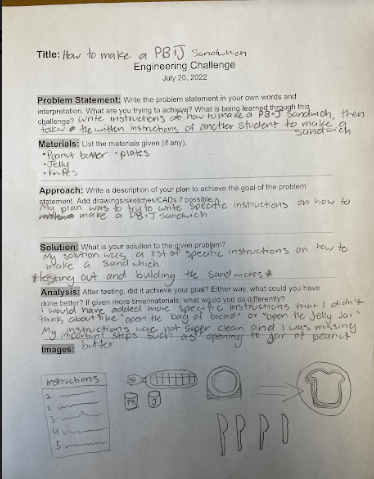 Title: How to make a PB+J Sandwich
Engineering Challenge
July 20, 2022
Problem Statement: Write the problem statement in your own words and
interpretation. What are you trying to achieve? What is being learned through this
challenge? Write instructions on how to make a PB+J Sandwich, then
follow the written instructions of another student to make a
sandwich
Materials: List the materials given (if any).
• Peanut butter • plates
• Jelly
• knifes
Approach: Write a description of your plan to achieve the goal of the problem
statement. Add drawings/sketches/CADs if possible.
My plan was to try to write specific instructions on how to
make a PB+J Sandwich
Solution: What is your solution to the given problem?
My solution was a list of specific instructions on how to
make a sandwhich
*testing out and building the sandwiches*
Analysis: After testing, did it achieve your goal? Either way, what could you have
done better? If given more time/materials, what would you do differently?
I would have added more specific instructions that I didn't
think about like "open the bag of bread" or "open the Jelly Jar"
My instructions were not super clean and I was missing
important steps such as opening the jar of peanut
butter
Images:
instructions
2
2
3
4
5
PB J